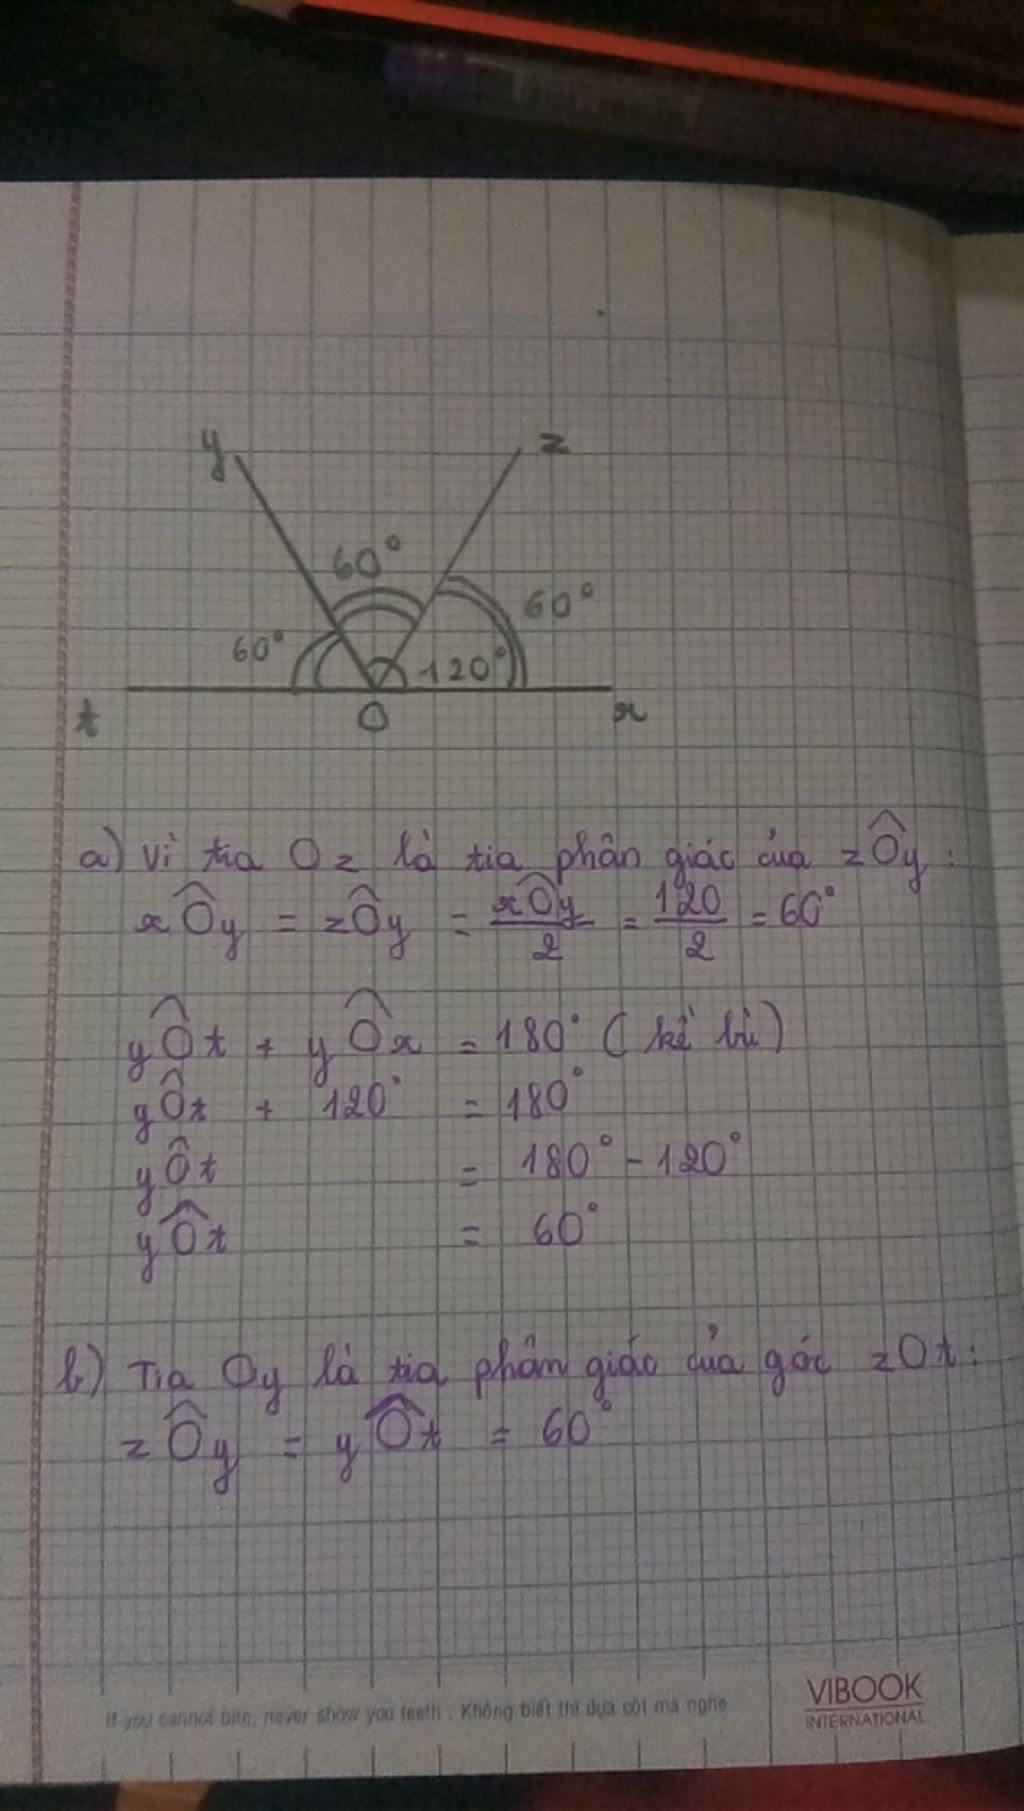 y z
60° 60°
60° 120°
t O x
a) Vì tia Oz là tia phân giác của zÔy :
xÔy = zÔy = xÔy/2 = 120/2 = 60°
yÔt + yÔx = 180° ( kề bù )
yÔt + 120° = 180°
yÔt = 180° - 120°
yÔt = 60°
b) Tia Oy là tia phân giác của góc zOt :
zÔy = yÔt = 60°
If you cannot bite, never show you teeth : Không biết thì dựa cột mà nghe
VIBOOK
INTERNATIONAL